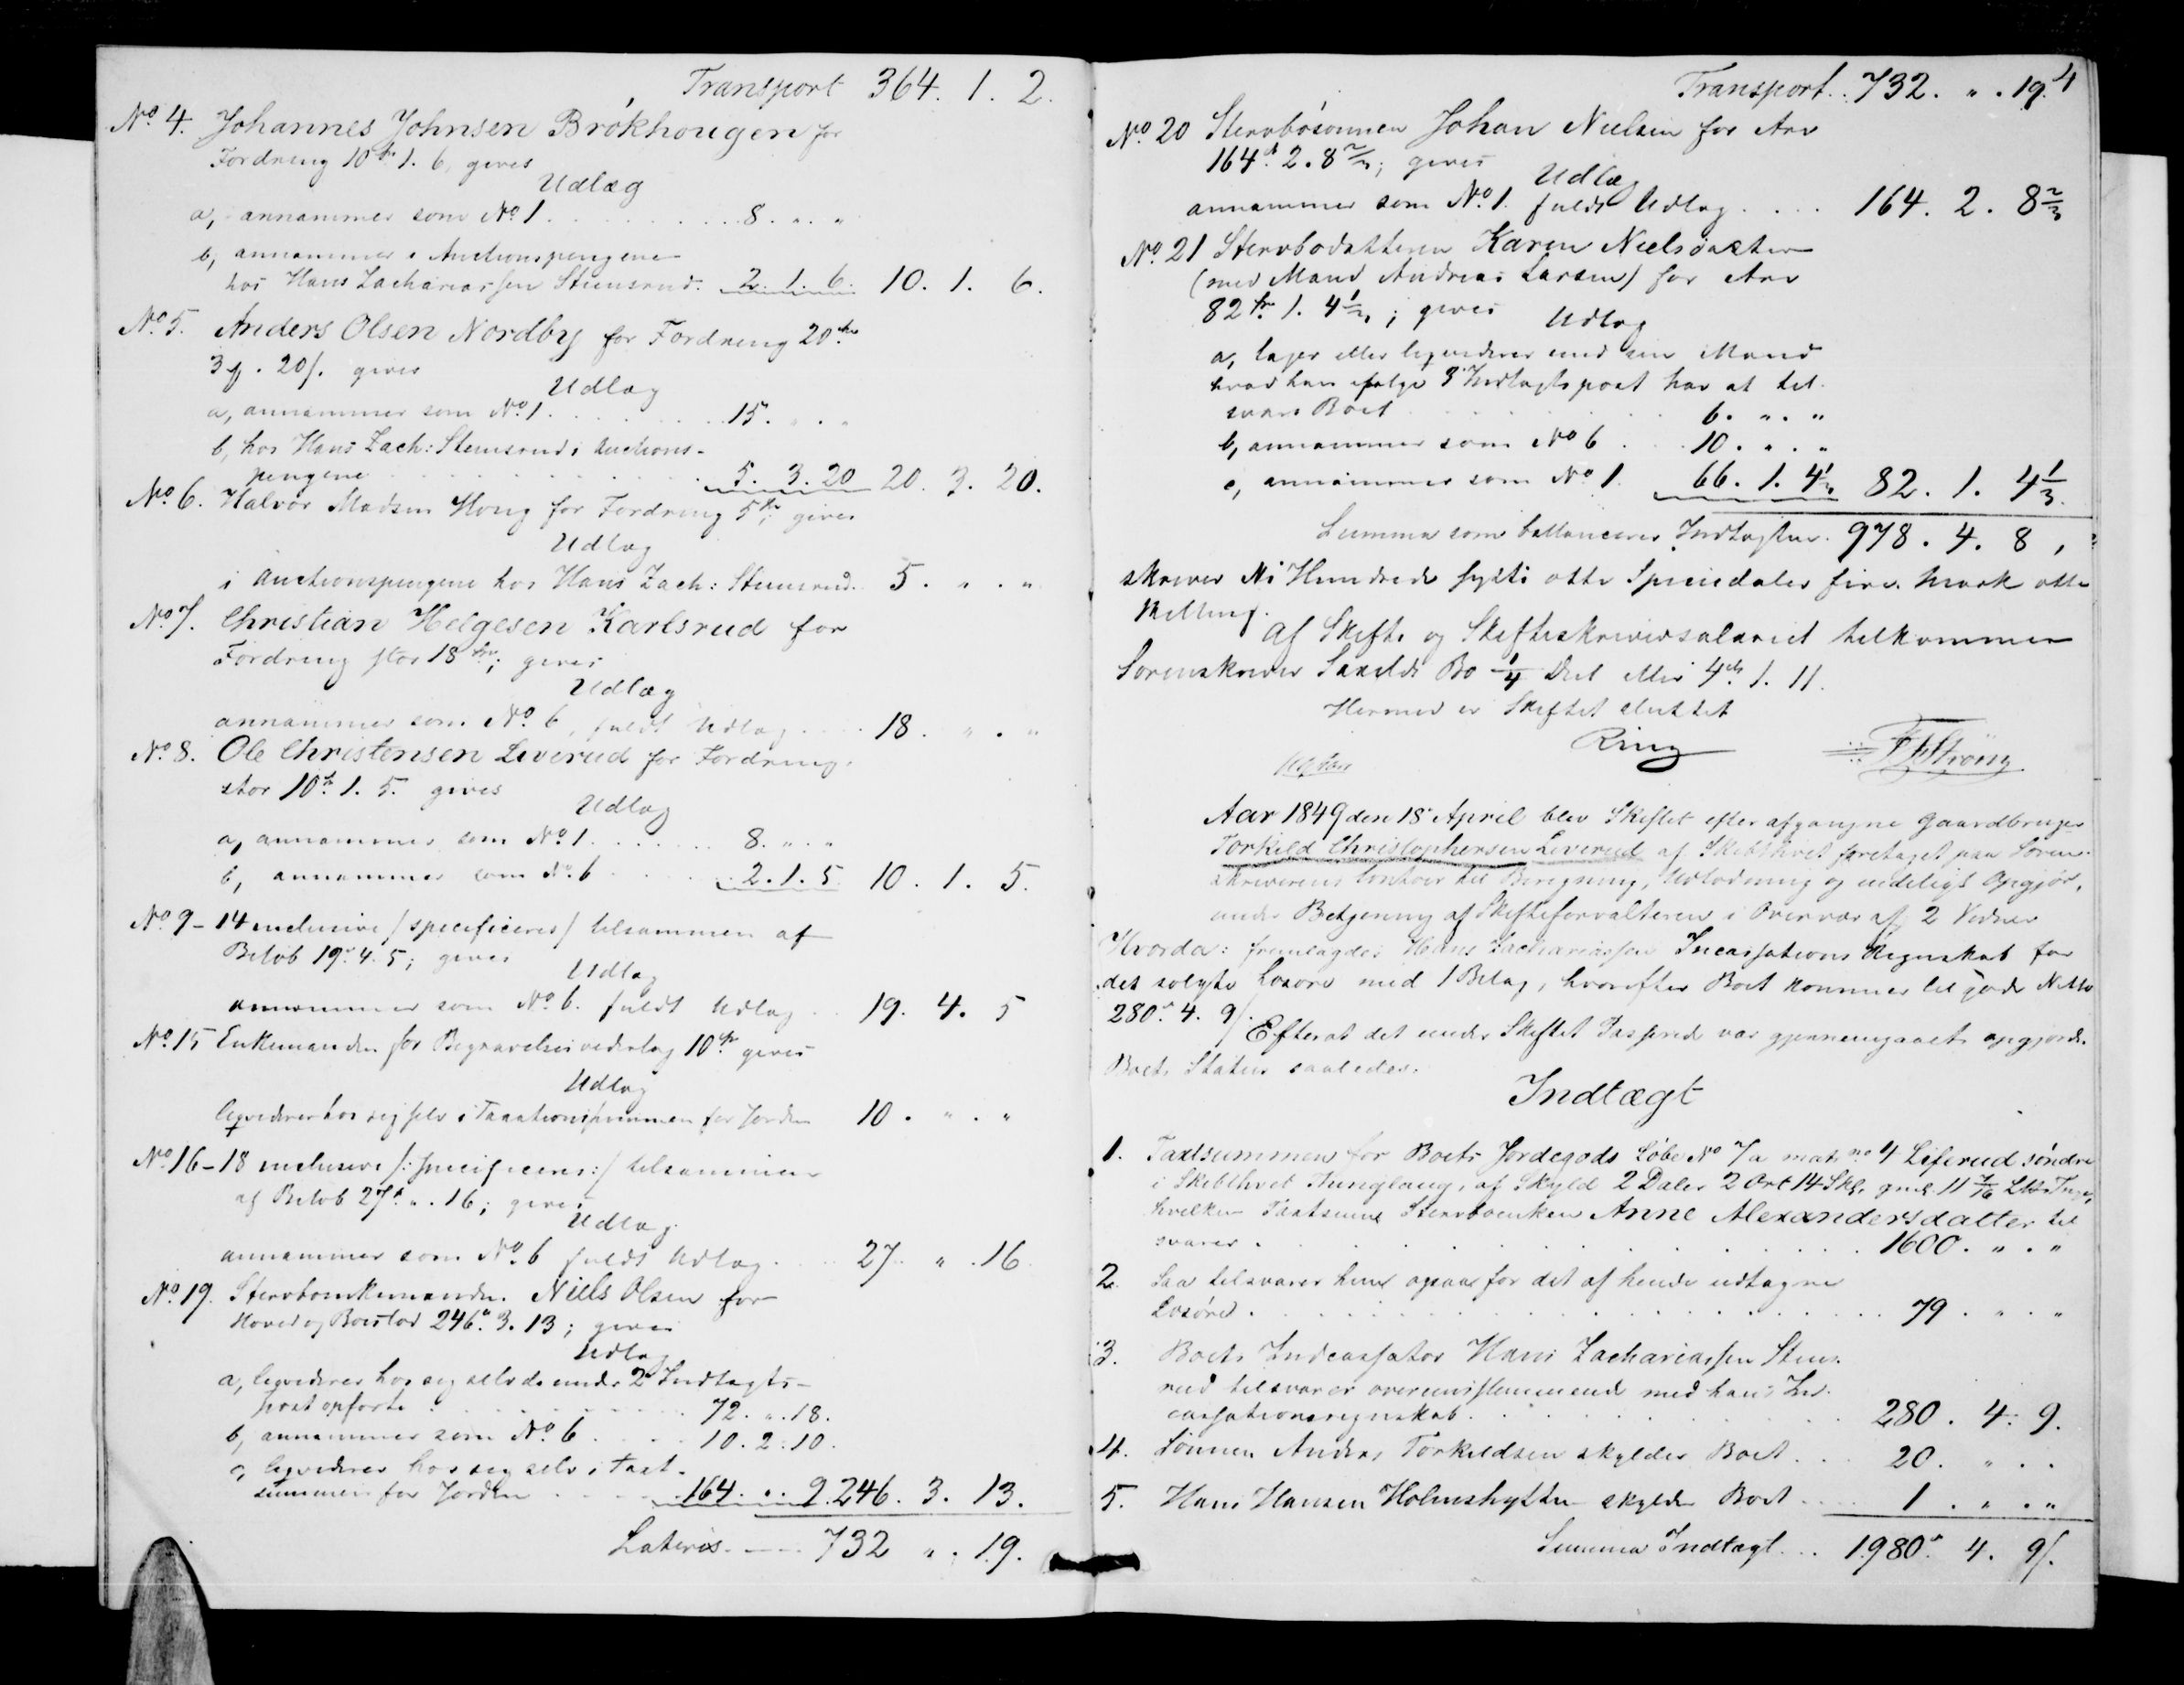 Transport 364. 1. 2.
No 4. Johannes Johnsen Brökhougen for
Fordring 10 1. 6, gives
Udlæg
a, annammer som No 1 . . . 8. " . "
b, annammer i Auctionspengene
hos Hans Zachariassen Stensrud. 2. 1. 6. 10. 1. 6.
No 5. Anders Olsen Nordby for Fordring 20
3 . 20 . gives
Udlæg
a, annammer som No 1 . . . 15. " . "
b, hos Hans Zach: Stensrud i Auctions-
pengene . . . 5. 3. 20 20. 3. 20.
No 6. Halvor Madsen Houg for Fordring 5; gives
Udlæg
i Auctionspengene hos Hans Zach: Stensrud. 5. " . "
No 7. Christian Helgesen Karlsrud for
Fordring stor 18; gives
Udlæg
annammer som No 6, fuldt Udlæg . . . 18. " . "
No 8. Ole Christensen Liverud for Fordring
stor 10. 1. 5. gives
Udlæg
a, annammer som No 1 . . . 8. " . "
b, annammer som No 6 . . . 2. 1. 5 10. 1. 5.
No 9-14 inclusive / specificeres / tilsammen af
Belöb 19. 4. 5; gives
Udlæg
annammer som No 6. fuldt Udlæg . . 19. 4. 5
No 15 Enkemanden for Begravelses vederlag 10 gives
Udlæg
liqviderer hos sig selv i Taxationssummen for Jorden 10. " . "
No 16-18 inclusive /: specificeres :/ tilsammen
af Belöb 27. " . 16; gives
Udlæg
annammer som No 6 fuldt Udlæg . . 27. " . 16
No 19. Stervboenkemanden Niels Olsen for
Hoved og Boeslod 246. 3. 13; gives
Udlæg
a, liqviderer hos sig selv de under 2 Indtægts-
post opförte . . . 72. " . 18.
b, annammer som No 6 . . . 10. 2. 10.
c, liqviderer hos sig selv i Taxt-
summen for Jorden . . . 164. " . 9 246. 3. 13.
Lateris . . . 732 " . 19.
Transport . . 732. " . 19. 4
No 20 Stervbosönnen Johan Nielsen for Arv
164. 2. 8 2/3; gives
Udlæg
annammer som No 1. fuldt Udlæg . . . 164. 2. 8 2/3
No 21 Stervbodatteren Karen Nielsdatter
(med Mand Andreas Larsen) for Arv
82 1. 4 1/3; gives
Udlæg
a, tager eller liqviderer med sin Mand
hvad han ifölge 3 Indtægtspost har at til-
svare Boet . . . 6. " . "
b, annammer som No 6 . . 10. " . "
c, annammer som No 1 66. 1. 4 1/3 82. 1. 4 1/3.
Summa som ballancerer Indtægten. 978. 4. 8,
skriver Ni Hundrede sytti otte Speciedaler fire Mark otte
Skilling.
Af Skifte og Skifteskriversalariet tilkommer
Sorenskriver Bo 1/4 Deel eller 4 1. 11.
Hermed er Skiftet sluttet
Ring F Ström
Aar 1849 den 18 April blev Skiftet efter afgangne Gaardbruger
Torkild Christophersen Liverud af Skibthvet foretaget paa Soren-
skriverens Contoir til Beregning, Udlodning og endeligt Opgjör,
under Betjening af Skifteforvalteren i Overvær af 2 Vidner
Hvorda: fremlagdes Hans Zachariassen Incassations Regnskab for
det solgte Lösöre med 1 Bilag, hvorefter Boet kommer til gode Netto
280. 4. 9.
Efterat det under Skiftet Passerede var gjennemgaaet opgjordes
Boets Status saaledes:
Indtægt
1. Taxtsummen for Boets Jordegods Löbe No 7a mat no 4 Liferud söndre
i Skibthvet Thinglaug, af Skyld 2 Daler 2 Ort 14 Sk, 11
hvilken Taxtsum Stervboenken Anne Alexandersdatter til
svarer . . . 1600. " . "
2. Saa tilsvarer hun ogsaa for det af hende udtagne
Lösöre . . . 79. " . "
3. Boets Incassator Hans Zachariassen Stens-
rud tilsvarer overensstemmende med hans In-
cassationsregnskab . . . 280. 4. 9.
4. Sönnen Anders Torkildsen skylder Boet . . . 20. " . "
5. Hans Hansen Holmshytten skylder Boet . . . 1. " . "
Summa Indtægt . . . 1980. 4. 9.